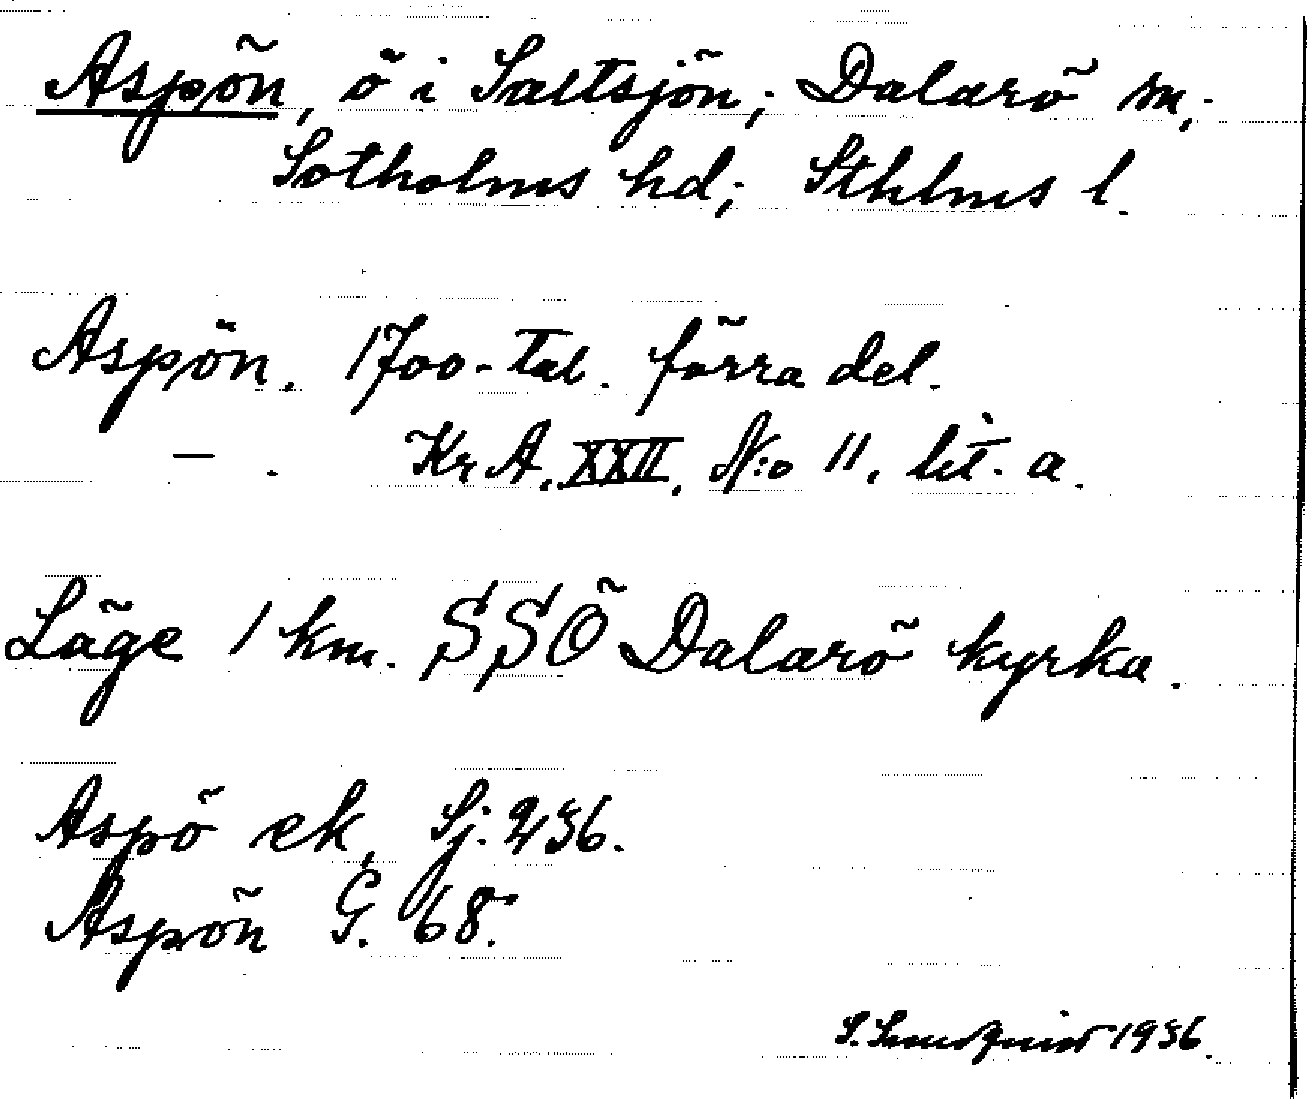 Aspön, ö i Saltsjön; Dalarö sn,
Sotholms hd; Sthlms l.
Aspön. 1700-tal. förra del.
— . Kr A. XXII. N:o 11. lit. a.
Läge 1 km. SSÖ Dalarö kyrka.
Aspö ek, Sj. 236.
Aspön G. 68.
S. 1936.